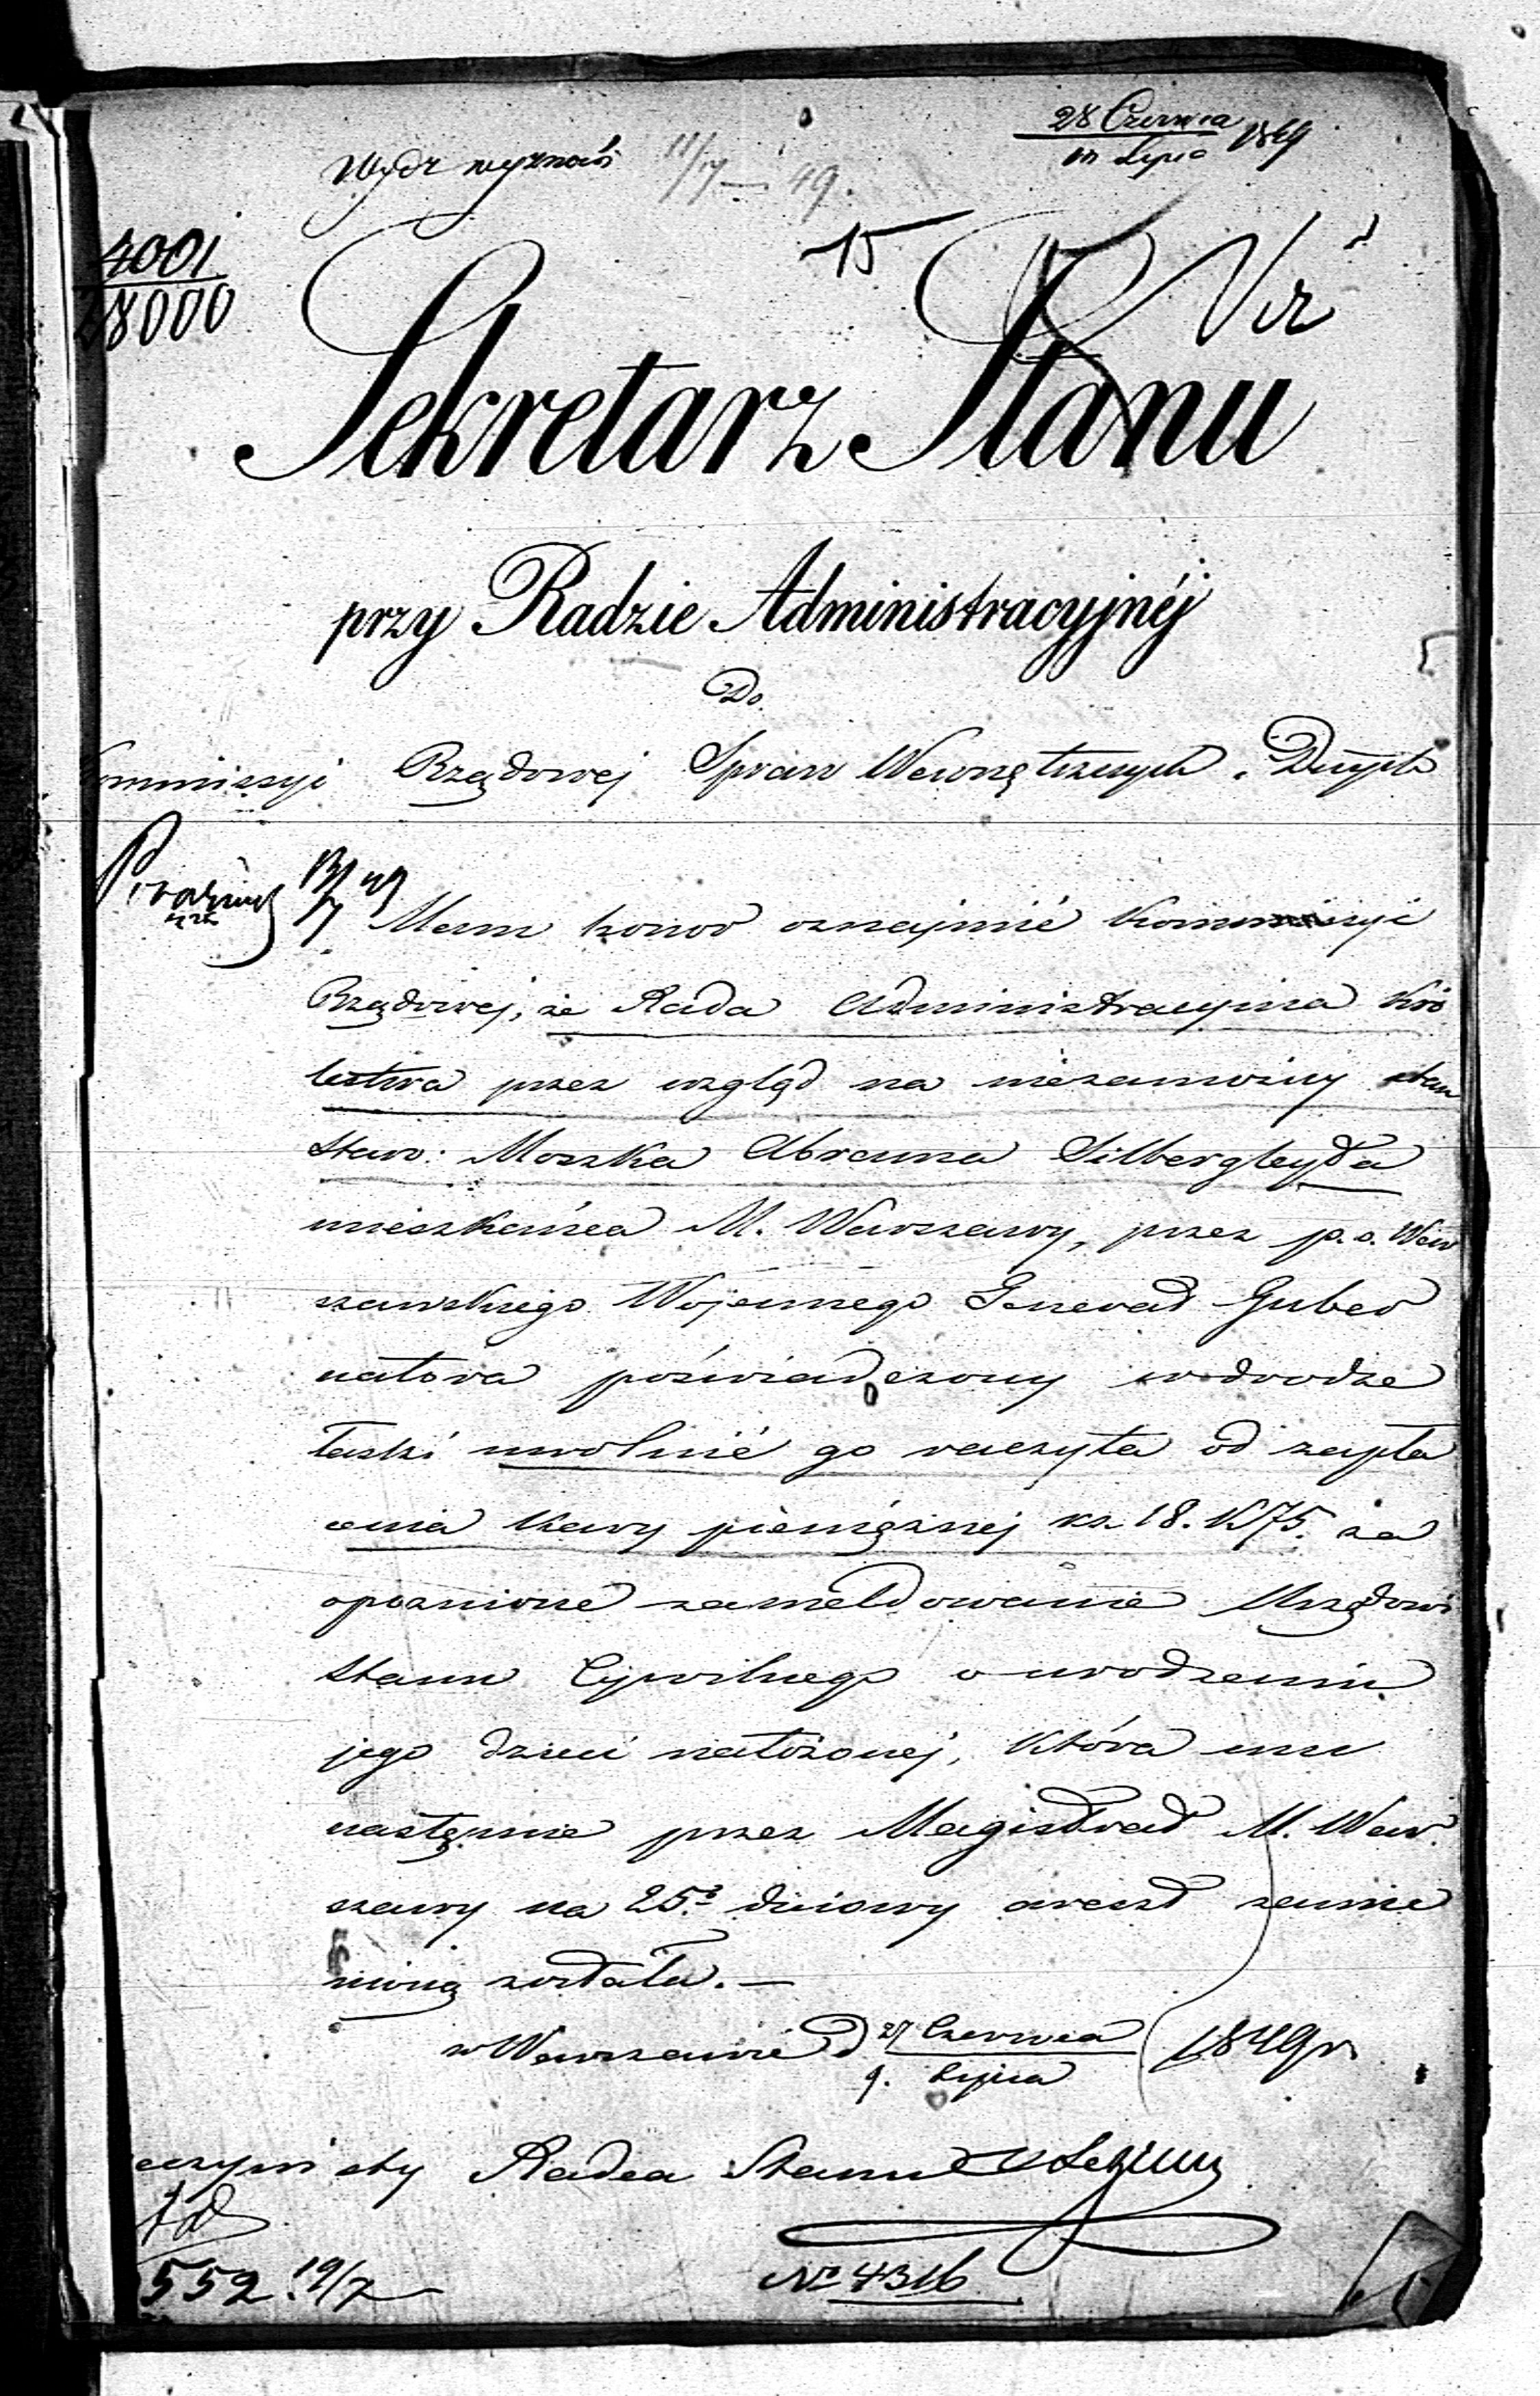 28 Czerwca
10 Lipca 1849
Wydz wyznań 11/17 — 49.
15
4001
28000
Sekretarz Stanu
przy Radzie Administracyjnéj
Do
ommissyi Rządowej Spraw Wewnętrznych i Duch
13/7 49
Mam honor oznajmić Kommissyi
Rządowej, że Rada Administracyjna Kró
lestwa przez wzgląd na niezamożny stan
staro: Moszka Abrama Silbergleyda
mieszkańca M. Warszawy, przez p. o. War
szawskiego Wojennego Generał Guber
natora poświadczony w drodze
łaski uwolnić go raczyła od zapła
cenia kary pieniężnej rs. 18. k. 75. za
opoznione zameldowanie Urzędowi
Stanu Cywilnego o urodzeniu
jego dzieci nałożonej, która mu
następnie przez Magistrat M. War
szawy na 25. dniowy areszt zamie
nioną została. —
w Warszawie d 27 Czerwca
9. Lipca 1849 r.
eczywisty Radca Stanu
552 19/7
№ 4316